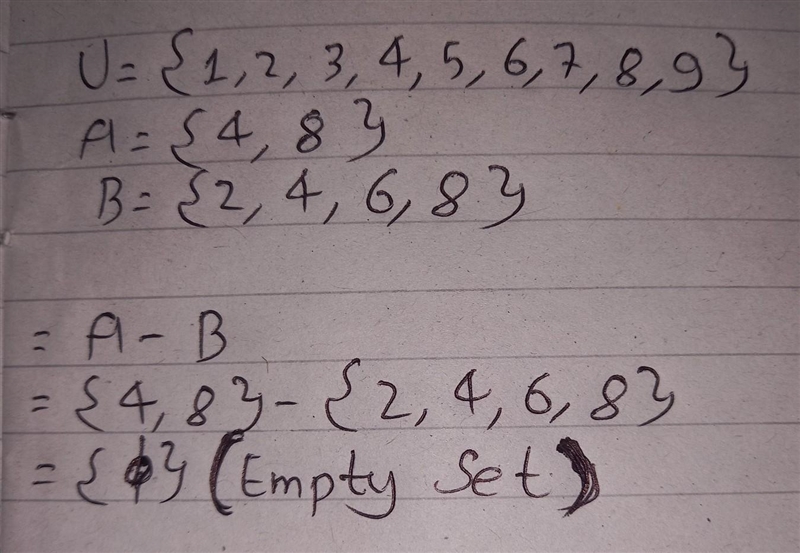 U= {1, 2, 3, 4, 5, 6, 7, 8, 9}
A= {4, 8}
B= {2, 4, 6, 8}
= A - B
= {4, 8} - {2, 4, 6, 8}
= {ϕ} (Empty Set)